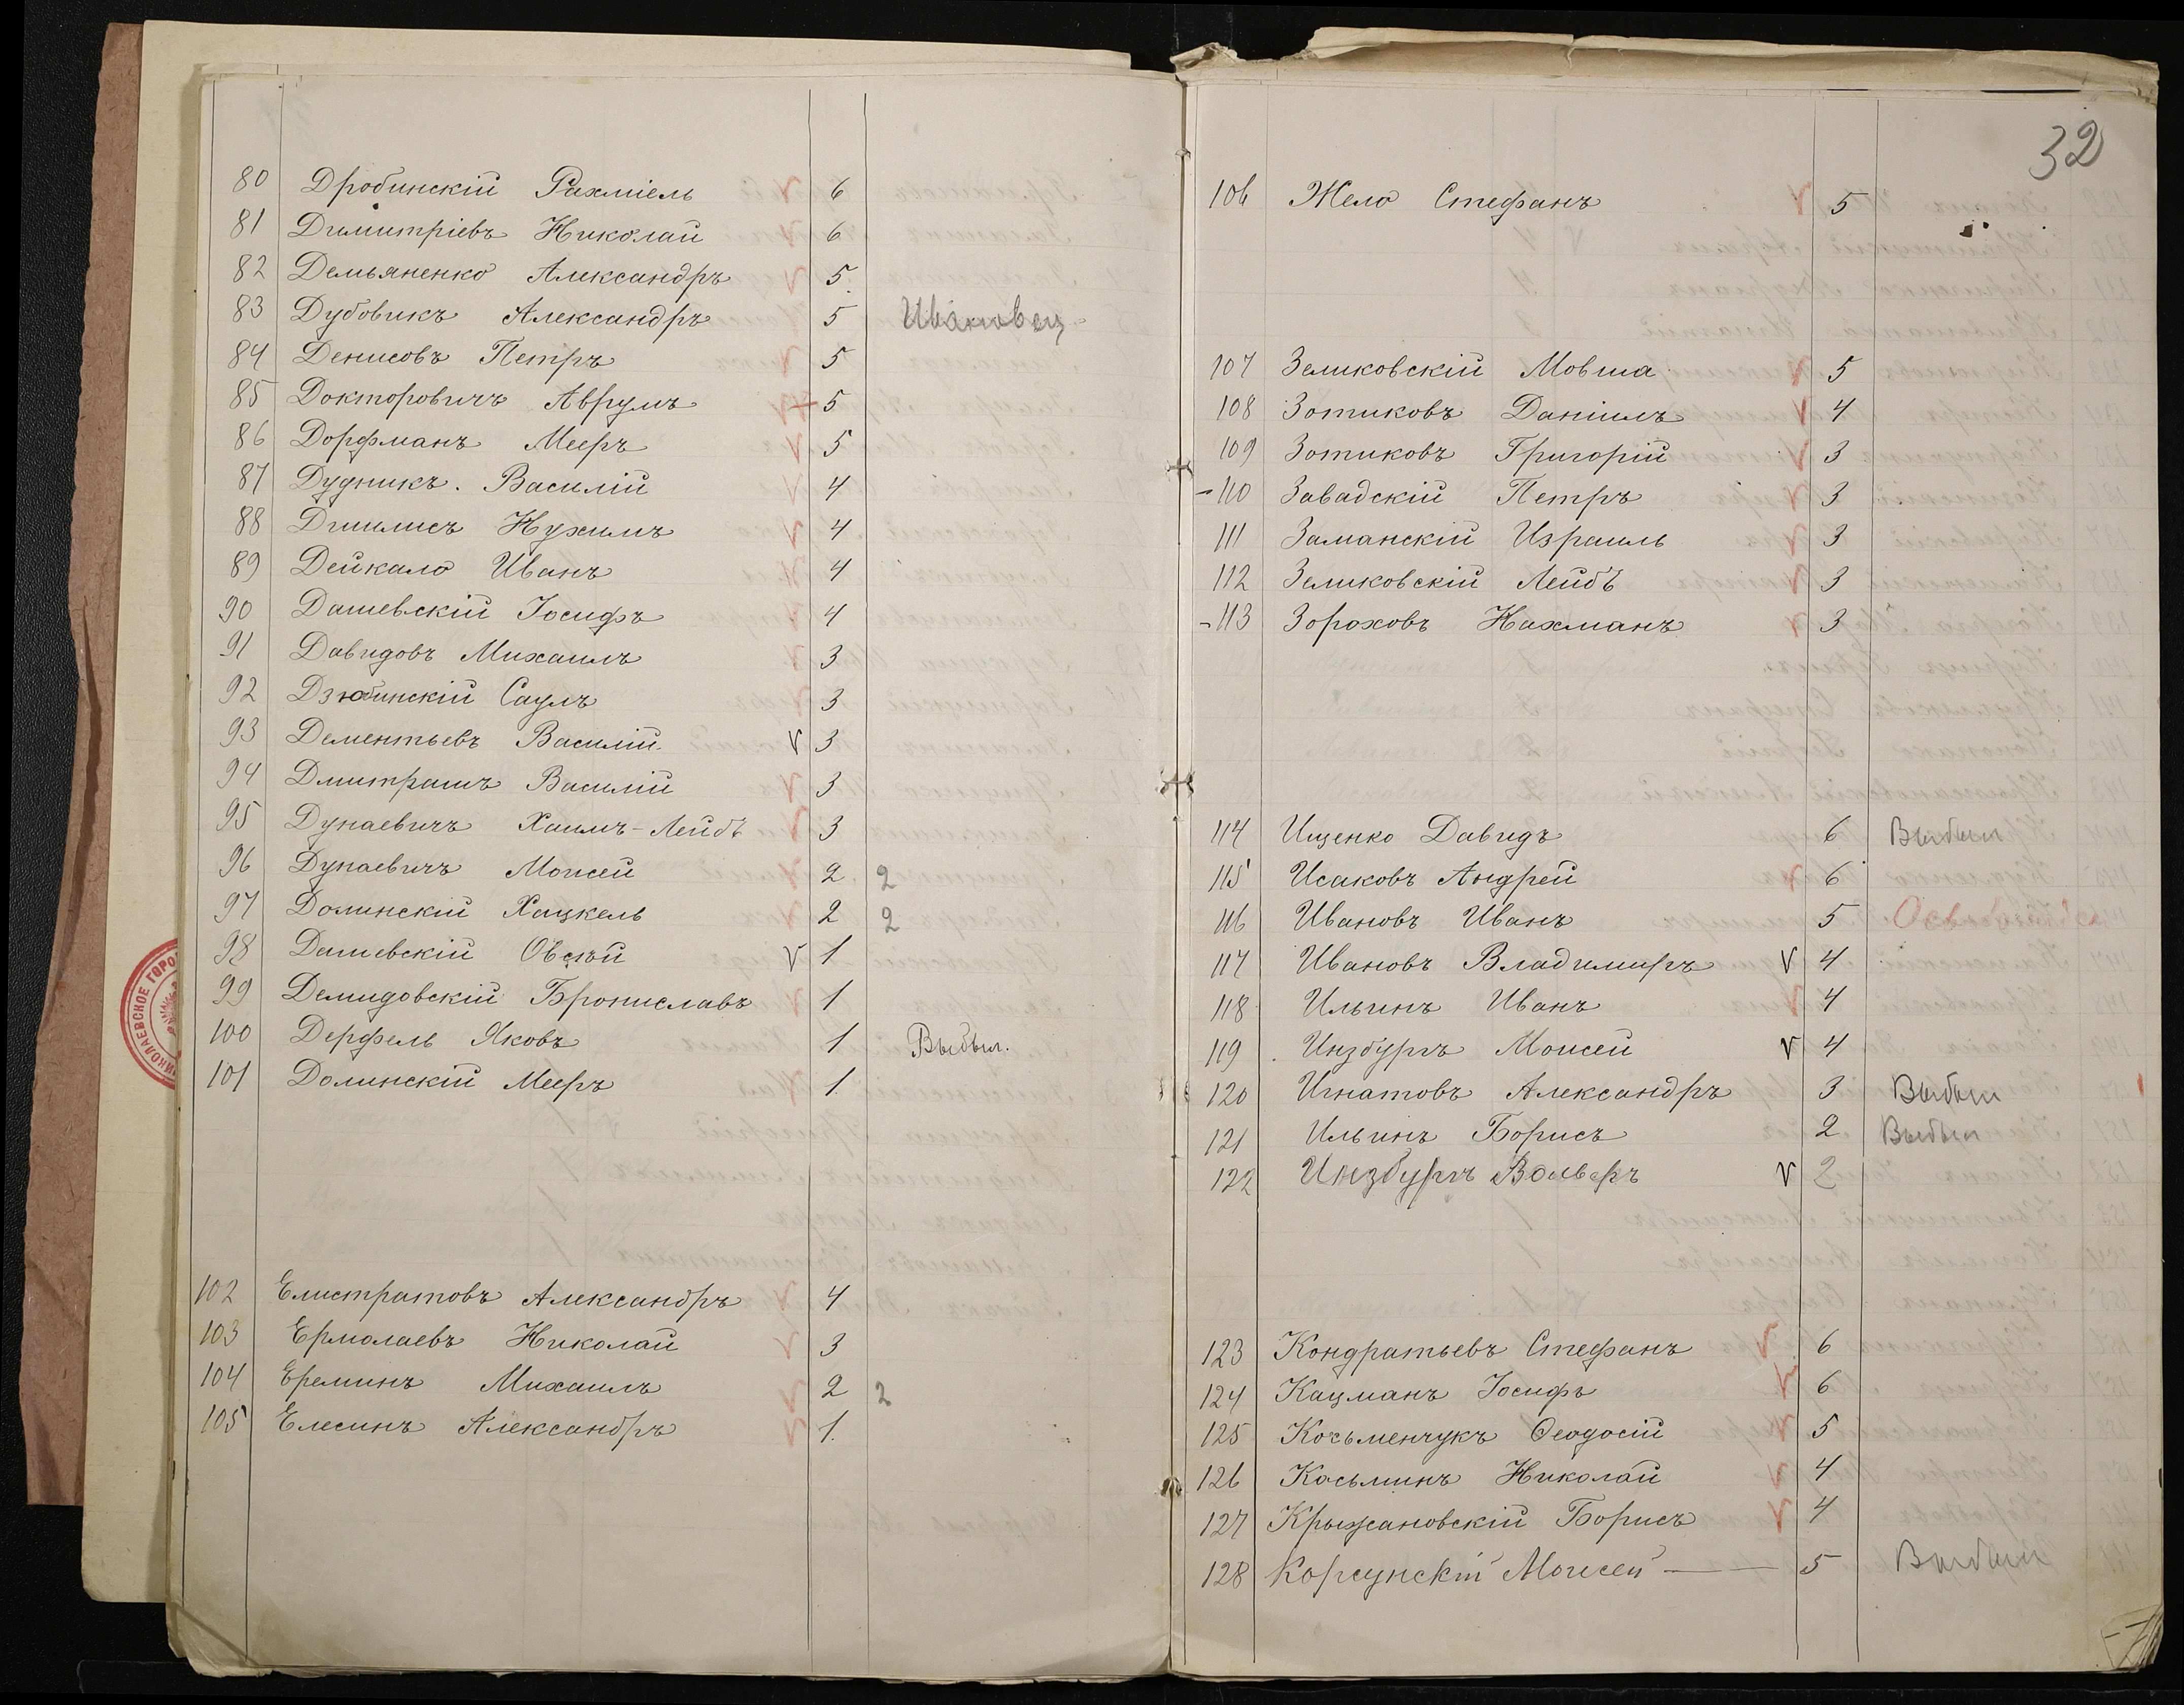 80 Дробинскій Рахміель 6
81 Димитріевъ Николай 6
82 Демьяненко Александръ 5
83 Дубовикъ Александръ 5
84 Денисовъ Петръ 5
85 Докторовичъ Аврумъ 5
86 Дорфманъ Мееръ 5
87 Дудникъ. Василій 4
88 Нухимъ 4
89 Дейкало Иванъ 4
90 Дашевскій Іосифъ 4
91 Давидовъ Михаилъ 3
92 Дзюбинскій Саулъ 3
93 Дементьевъ Василій V 3
94 Дмитрашъ Василій 3
95 Дунаевичъ Хаимъ-Лейбъ 3
96 Дунаевичъ Моисей 2 2
97 Долинскій Хацкель 2 2
98 Дашевскій Овсѣй V 1
99 Демидовскій Брониславъ 1
100 Дерфель Яковъ 1 Выбыл.
101 Долинскій Мееръ 1.
102 Елистратовъ Александръ 4
103 Ермолаевъ Николай 3
104 Ереминъ Михаилъ 2 2
105 Елесинъ Александръ 1.
НИКОЛАЕВСКОЕ ГОРО
32
106 Жело Стефанъ 5
107 Зеликовскій Мовша 5
108 Зотиковъ Даніилъ 4
109 Зотиковъ Григорій 3
110 Завадскій Петръ 3
111 Заманскій Израиль 3
112 Зеликовскій Лейбъ 3
113 Зороховъ Нахманъ 3
114 Ищенко Давидъ 6 Выбыл
115 Исаковъ Андрей 6
116 Ивановъ Иванъ 5
117 Ивановъ Владимиръ V 4
118 Ильинъ Иванъ 4
119 Инзбургъ Моисей V 4
120 Игнатовъ Александръ 3 Выбыл
121 Ильинъ Борисъ 2 Выбыл
122 Инзбургъ Вольфъ V 2
123 Кондратьевъ Стефанъ 6
124 Кацманъ Іосифъ 6
125 Козьменчукъ Ѳеодосій 5
126 Касьминъ Николай 4
127 Крыжановскій Борисъ 4
128 Корсунскій Моисей — 5 Выбыл